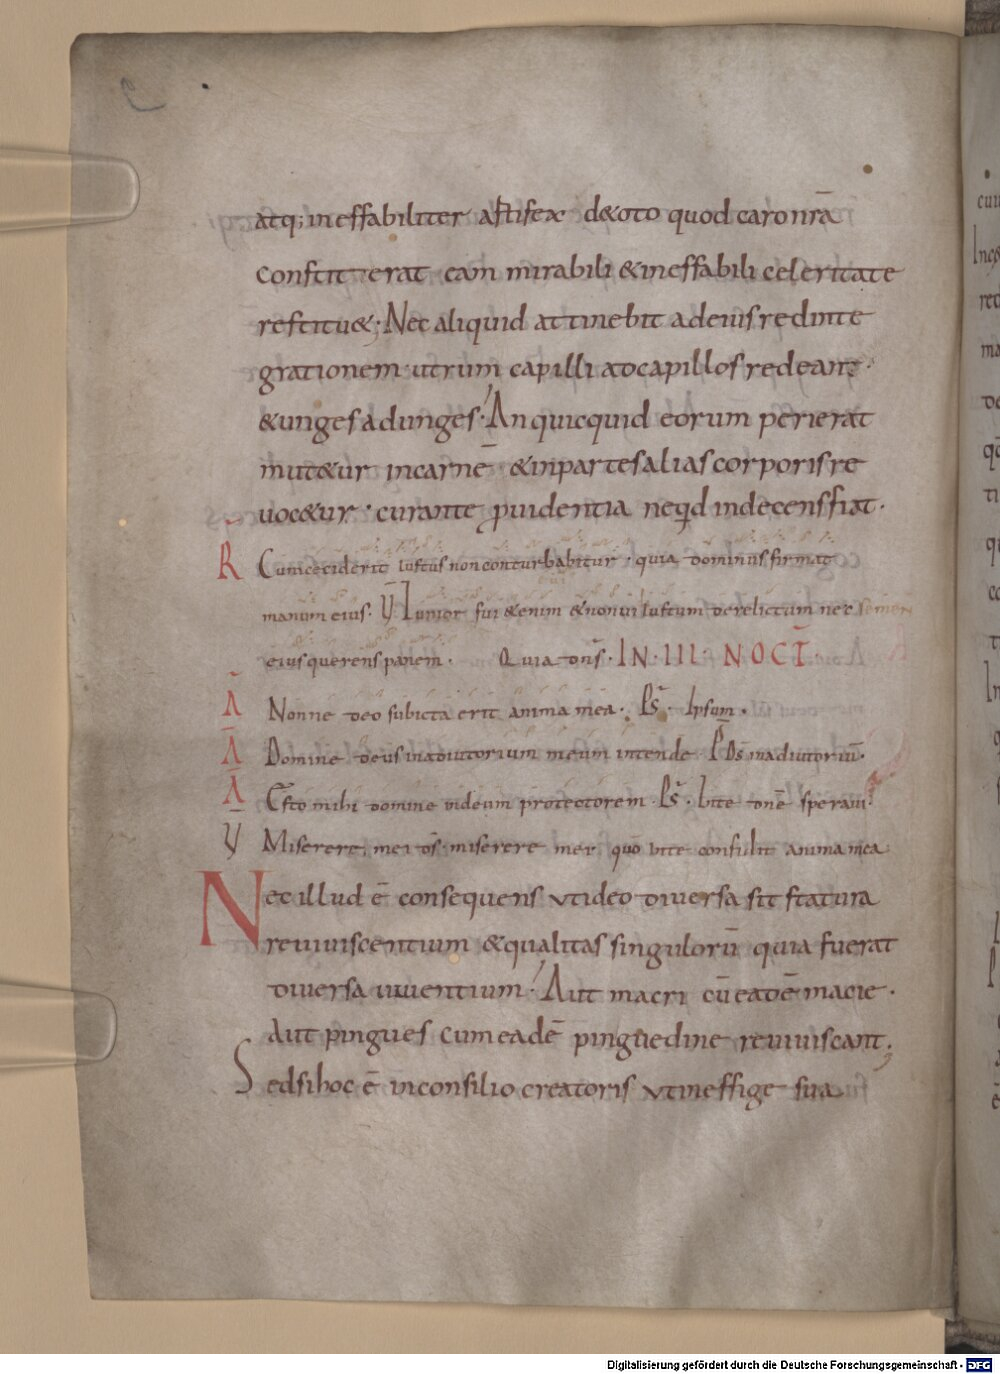 atq; ineffabiliter artifex de toto quod caro nr̄a
constiterat eam mirabili & ineffabili celeritate
restitu&. Nec aliquid attinebit ad eius redinte
grationem utrum capilli ad capillos redeant.
& unges ad unges. An quicquid eorum perierat
mut&ur in carnē & in partes alias corporis re
voc&ur. curante ꝓuidentia neqd indecens fiat.
R̄ Cum ceciderit iustus non conturbabitur. quia dominus firmat
manum eius. V̄ Iunior fui & enim & non vidi iustum derelictum nec semen
eius querens panem. Quia dn̄s. IN III NOCT̄.
Ā Nonne deo subiecta erit anima mea. Ps̄. Ipsum.
Ā Domine deus in adiutorium meum intende. P̄ D̄s in adiutoriū.
Ā Esto mihi domine in deum protectorem. Ps̄. In te dn̄e speravi.
V̄ Miserere mei d̄s miserere mei quō in te confidit anima mea
Nec illud ē consequens ut ideo diversa sit statura
reviviscentium & qualitas singulorū quia fuerat
diversa viventium. Aut macri cū eadē macie.
Aut pingues cum eadē pinguedine reviviscant.
Sed si hoc ē in consilio creatoris ut in effigie sua
Digitalisierung gefördert durch die Deutsche Forschungsgemeinschaft - DFG